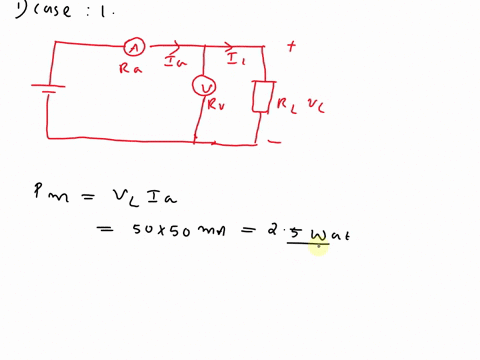 1) case : 1.
A Ia I1 +
Ra V Rv RL VL
-
Pm = VL Ia
= 50 x 50 mA = 2.5 Wat